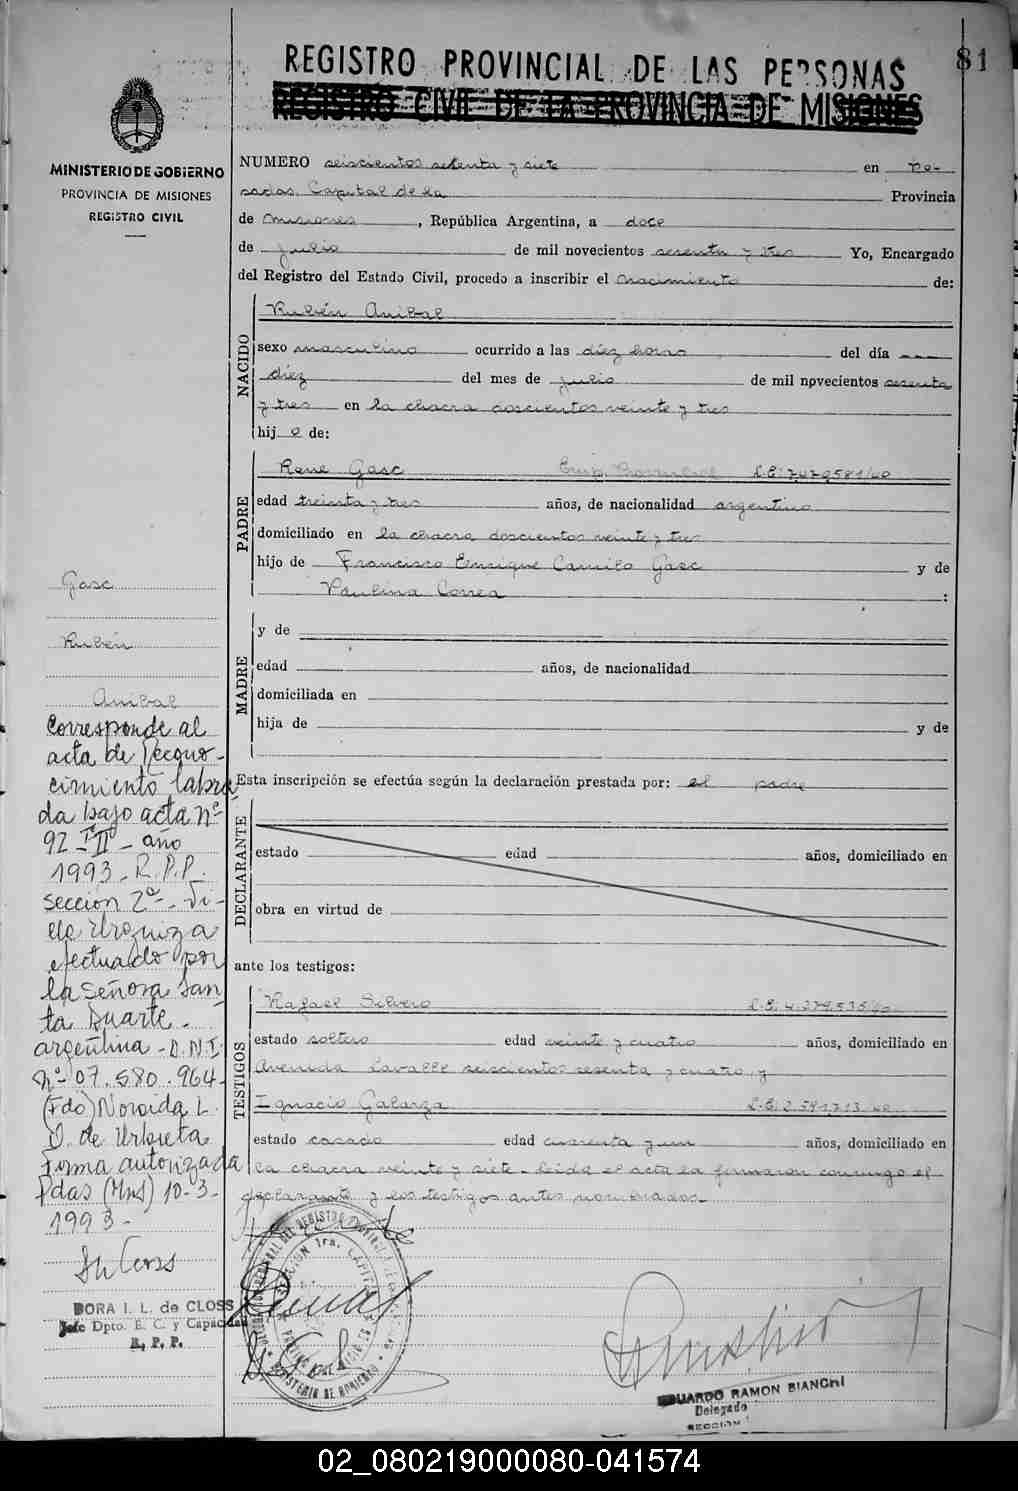 81
REGISTRO PROVINCIAL DE LAS PERSONAS
REGISTRO CIVIL DE LA PROVINCIA DE MISIONES
MINISTERIO DE GOBIERNO
PROVINCIA DE MISIONES
REGISTRO CIVIL
NUMERO seiscientos setenta y siete en Po-
sadas, Capital de la Provincia
de Misiones, República Argentina, a doce
de julio de mil novecientos sesenta y tres Yo, Encargado
del Registro del Estado Civil, procedo a inscribir el nacimiento de:
NACIDO
Rubén Anibal
sexo masculino ocurrido a las diez horas del día
diez del mes de julio de mil novecientos sesenta
y tres en la chacra doscientos veinte y tres
hijo de:
PADRE
Rene Gasc Emp. Provincial L.E: 7.479581/40
edad treinta y tres años, de nacionalidad argentino
domiciliado en la chacra doscientos veinte y tres
hijo de Francisco Enrique Camilo Gasc y de
Paulina Correa :
MADRE
y de
edad años, de nacionalidad
domiciliada en
hija de y de
Esta inscripción se efectúa según la declaración prestada por: el padre
DECLARANTE
estado edad años, domiciliado en
obra en virtud de
ante los testigos:
TESTIGOS
Rafael Silvero L.E: 4.279.535/40
estado soltero edad veinte y cuatro años, domiciliado en
Avenida Lavalle seiscientos sesenta y cuatro, y
Ignacio Galarza
estado casado edad cuarenta y un años, domiciliado en
la chacra veinte y siete - leida el acta la firmaron conmigo el
declarante y los testigos antes nombrados
Gasc
Rubén
Anibal
Corresponde al
acta de Recono-
cimiento labra
da bajo acta nº
92 - Tº II - año
1993 - R.P.P.
Sección 2ª - Vi-
lla Urquiza
efectuado por
la señora San
ta Duarte -
argentina - D.N.I.
Nº 07.580.964
(Fdo) Noroida L.
D. de Urbieta
Firma autorizada
Pdas (Mns) 10-3-
1993 -
DORA I. L. de CLOSS
Jefe Dpto. E. C. y Capacidad
R. P. P.
EDUARDO RAMON BIANCHI
Delegado
SECCION
02_080219000080-041574